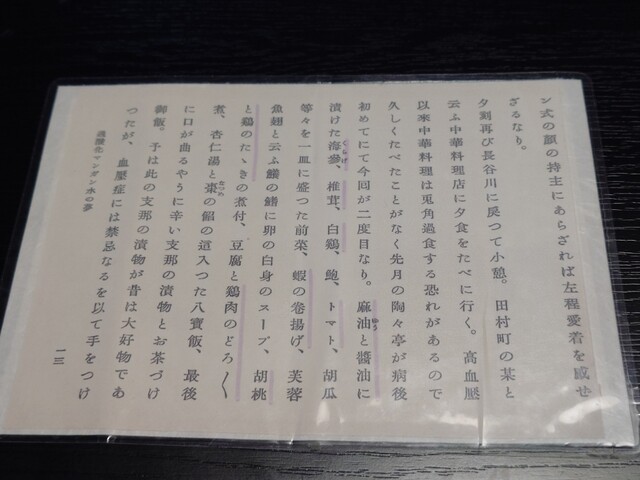 ン式の顔の持主にあらざれば左程愛着を感せ
ざるなり。
夕刻再び長谷川に戻つて小憩。田村町の某と
云ふ中華料理店に夕食をたべに行く。高血壓
以来中華料理は兎角過食する恐れがあるので
久しくたべたことがなく先月の陶々亭が病後
初めてにて今回が二度目なり。麻油と醤油に
漬けた海蔘、椎茸、白鶏、鮑、トマト、胡瓜
等々を一皿に盛つた前菜、蝦の卷揚げ、芙蓉
魚翅と云ふ鱶の鰭に卵の白身のスープ、胡桃
と鶏のたゝきの煮付、豆腐と鶏肉のどろ〳〵
煮、杏仁湯と棗の餡の這入つた八寶飯、最後
に口が曲るやうに辛い支那の漬物とお茶づけ
御飯。予は此の支那の漬物が昔は大好物であ
つたが、血壓症には禁忌なるを以て手をつけ
過酸化マンガン水の夢
一三